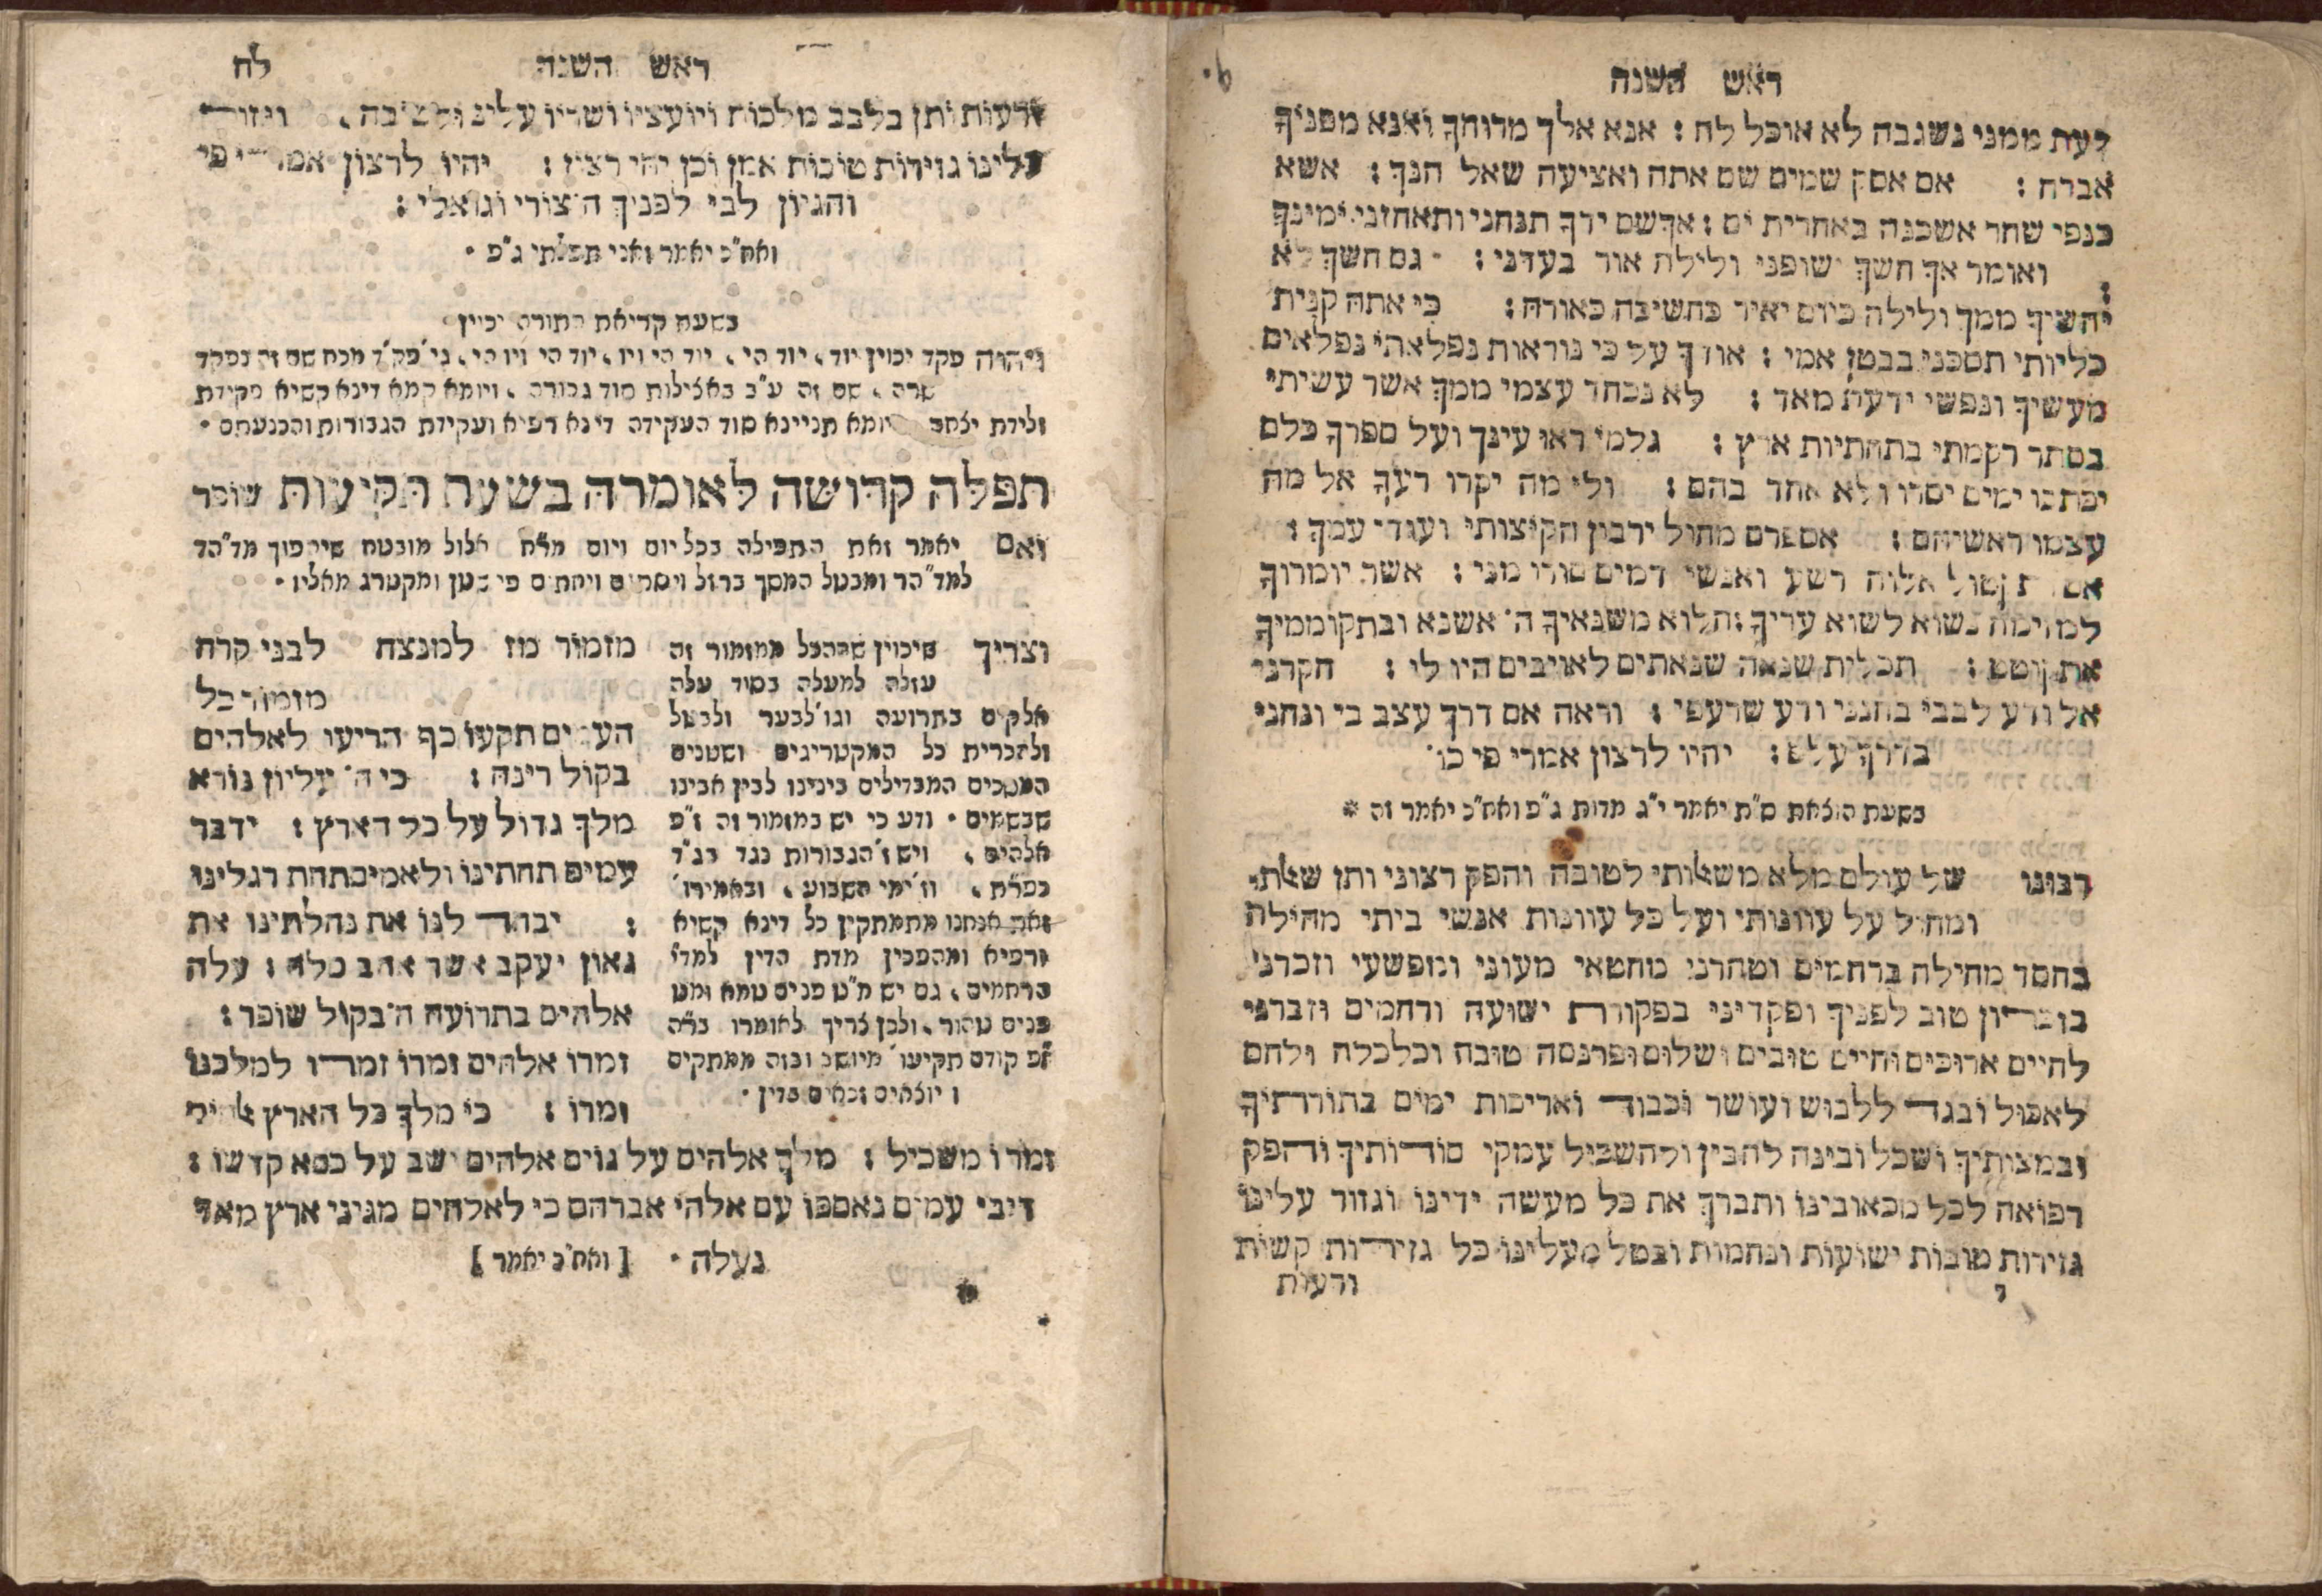 ראש השנה
דעת ממני נשגבה לא אוכל לה : אנא אלך מרוחך ואנא מפניך
אברח : אם אסק שמים שם אתה ואציעה שאל הנך : אשא
כנפי שחר אשכנה באחרית ים : אך שם ידך תנחני ותאחזני ימינך
: ואומר אך חשך ישופני ולילה אור בעדני : גם חשך לא
יחשיך ממך ולילה כיום יאיר כחשיכה כאורה : כי אתה קנית
כליותי תסכני בבטן אמי : אודך על כי נוראות נפלאתי נפלאים
מעשיך ונפשי ידעת מאד : לא נכחד עצמי ממך אשר עשיתי
בסתר רקמתי בתחתיות ארץ : גלמי ראו עיניך ועל ספרך כלם
יכתבו ימים יסרו ולא אחד בהם : ולי מה יקרו רעך אל מה
עצמו ראשיהם : אספרם מחול ירבון הקיצותי ועודי עמך :
תקטול אלוה רשע ואנשי דמים סורו מני : אשר יומרוך
למזימה נשוא לשוא עריך : הלוא משנאיך ה' אשנא ובתקוממיך
אתקוטט : תכלית שנאה שנאתים לאויבים היו לי : חקרני
אל ודע לבבי בחנני ודע שרעפי : וראה אם דרך עצב בי ונחני
בדרך עולם : יהיו לרצון אמרי פי כו'
בשעת הוצאת ס"ת יאמר י"ג מדות ג"פ ואח"כ יאמר זה *
רבונו של עולם מלא משאלותי לטובה והפק רצוני ותן שאלתי
ומחול על עוונותי ועל כל עוונות אנשי ביתי מחילה
בחסד מחילה ברחמים וטהרני מחטאי מעוני ומפשעי וזכרני
בזכרון טוב לפניך ופקדיני בפקודת ישועה ורחמים וזכרני
לחיים ארוכים וחיים טובים ושלום ופרנסה טובה וכלכלה ולחם
לאכול ובגד ללבוש ועושר וכבוד ואריכות ימים בתורתיך
ובמצותיך ושכל ובינה להבין ולהשכיל עמקי סודותיך והפק
רפואה לכל מכאובינו ותברך את כל מעשה ידינו וגזור עלינו
גזירות טובות ישועות ונחמות ובטל מעלינו כל גזירות קשות
י ורעות
ראש השנה לח
ורעות ותן בלבב מלכות ויועציו ושריו עלינו לטובה , וגזור
עלינו גזירות טובות אמן וכן יהי רצון : יהיו לרצון אמרי פי
והגיון לבי לפניך ה' צורי וגואלי :
ואח"כ יאמר ואני תפלתי ג"פ •
בשעת קריאת התורה יכוין
ויהוה פקד יכוין יוד , יוד הי , יוד הי ויו , יוד הי ויו הי , גי' פק"ד מכח שם זה נפקד
שרה , שם זה ע"ב באצילות סוד גבורה , ויומא קמא דינא קשיא פקידת
ולידת יצחק יומא תניינא סוד העקידה דינא רפיא ועקידת הגבורות והכנעתם •
תפלה קדושה לאומרה בשעת תקיעות שופר
ואם יאמר זאת התפילה בכל יום ויום מר"ח אלול מובטח שיהפוך מד"הד
למד"הר ומבטל המסך ברזל ויסתום ויחתום פי שטן ומקטרג מאליו •
וצריך שיכוין שבהכל ממזמור זה
עולה למעלה בסוד עלה
אלקים בתרועה וגו' לבער ולבטל
ולהכרית כל המקטריגים ושטנים
המסכים המבדילים בינינו לבין אבינו
שבשמים • ודע כי יש במזמור זה ז"פ
אלהים , ויש ז' הגבורות כנגד
וז' ימי השבוע , ובאמירת
זאת אנחנו מתמתקין כל דינא קשיא
ורפיא ומהפכין מדת הדין למד'
הרחמים , גם יש מ"ט פנים טמא ומט
פנים טהור , ולכן צריך לאומרו בר"ה
ז"פ קודם תקיעו' מיושב ובזה ממתקים
ויוצאים זכאים בדין •
מזמור מז למנצח לבני קרח
מזמור כל
העמים תקעו כף הריעו לאלהים
בקול רינה : כי ה' עליון נורא
מלך גדול על כל הארץ : ידבר
עמים תחתינו ולאמים תחת רגלינו
: יבחר לנו את נחלתינו את
גאון יעקב אשר אהב סלה : עלה
אלהים בתרועה ה' בקול שופר :
זמרו אלהים זמרו זמרו למלכנו
זמרו : כי מלך כל הארץ אלהים
זמרו משכיל : מלך אלהים על גוים אלהים ישב על כסא קדשו :
נדיבי עמים נאספו עם אלהי אברהם כי לאלהים מגיני ארץ מאד
נעלה • [ ואח"כ יאמר ]